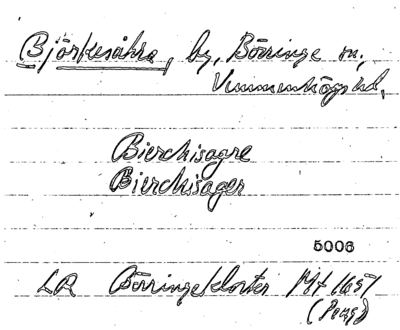 Björkesåkra, by, Börringe sn,
Vemmenhögs hd,
Bierckisagre
Bierckisager
5006
LR Börringekloster Mf 1651
(Peng)